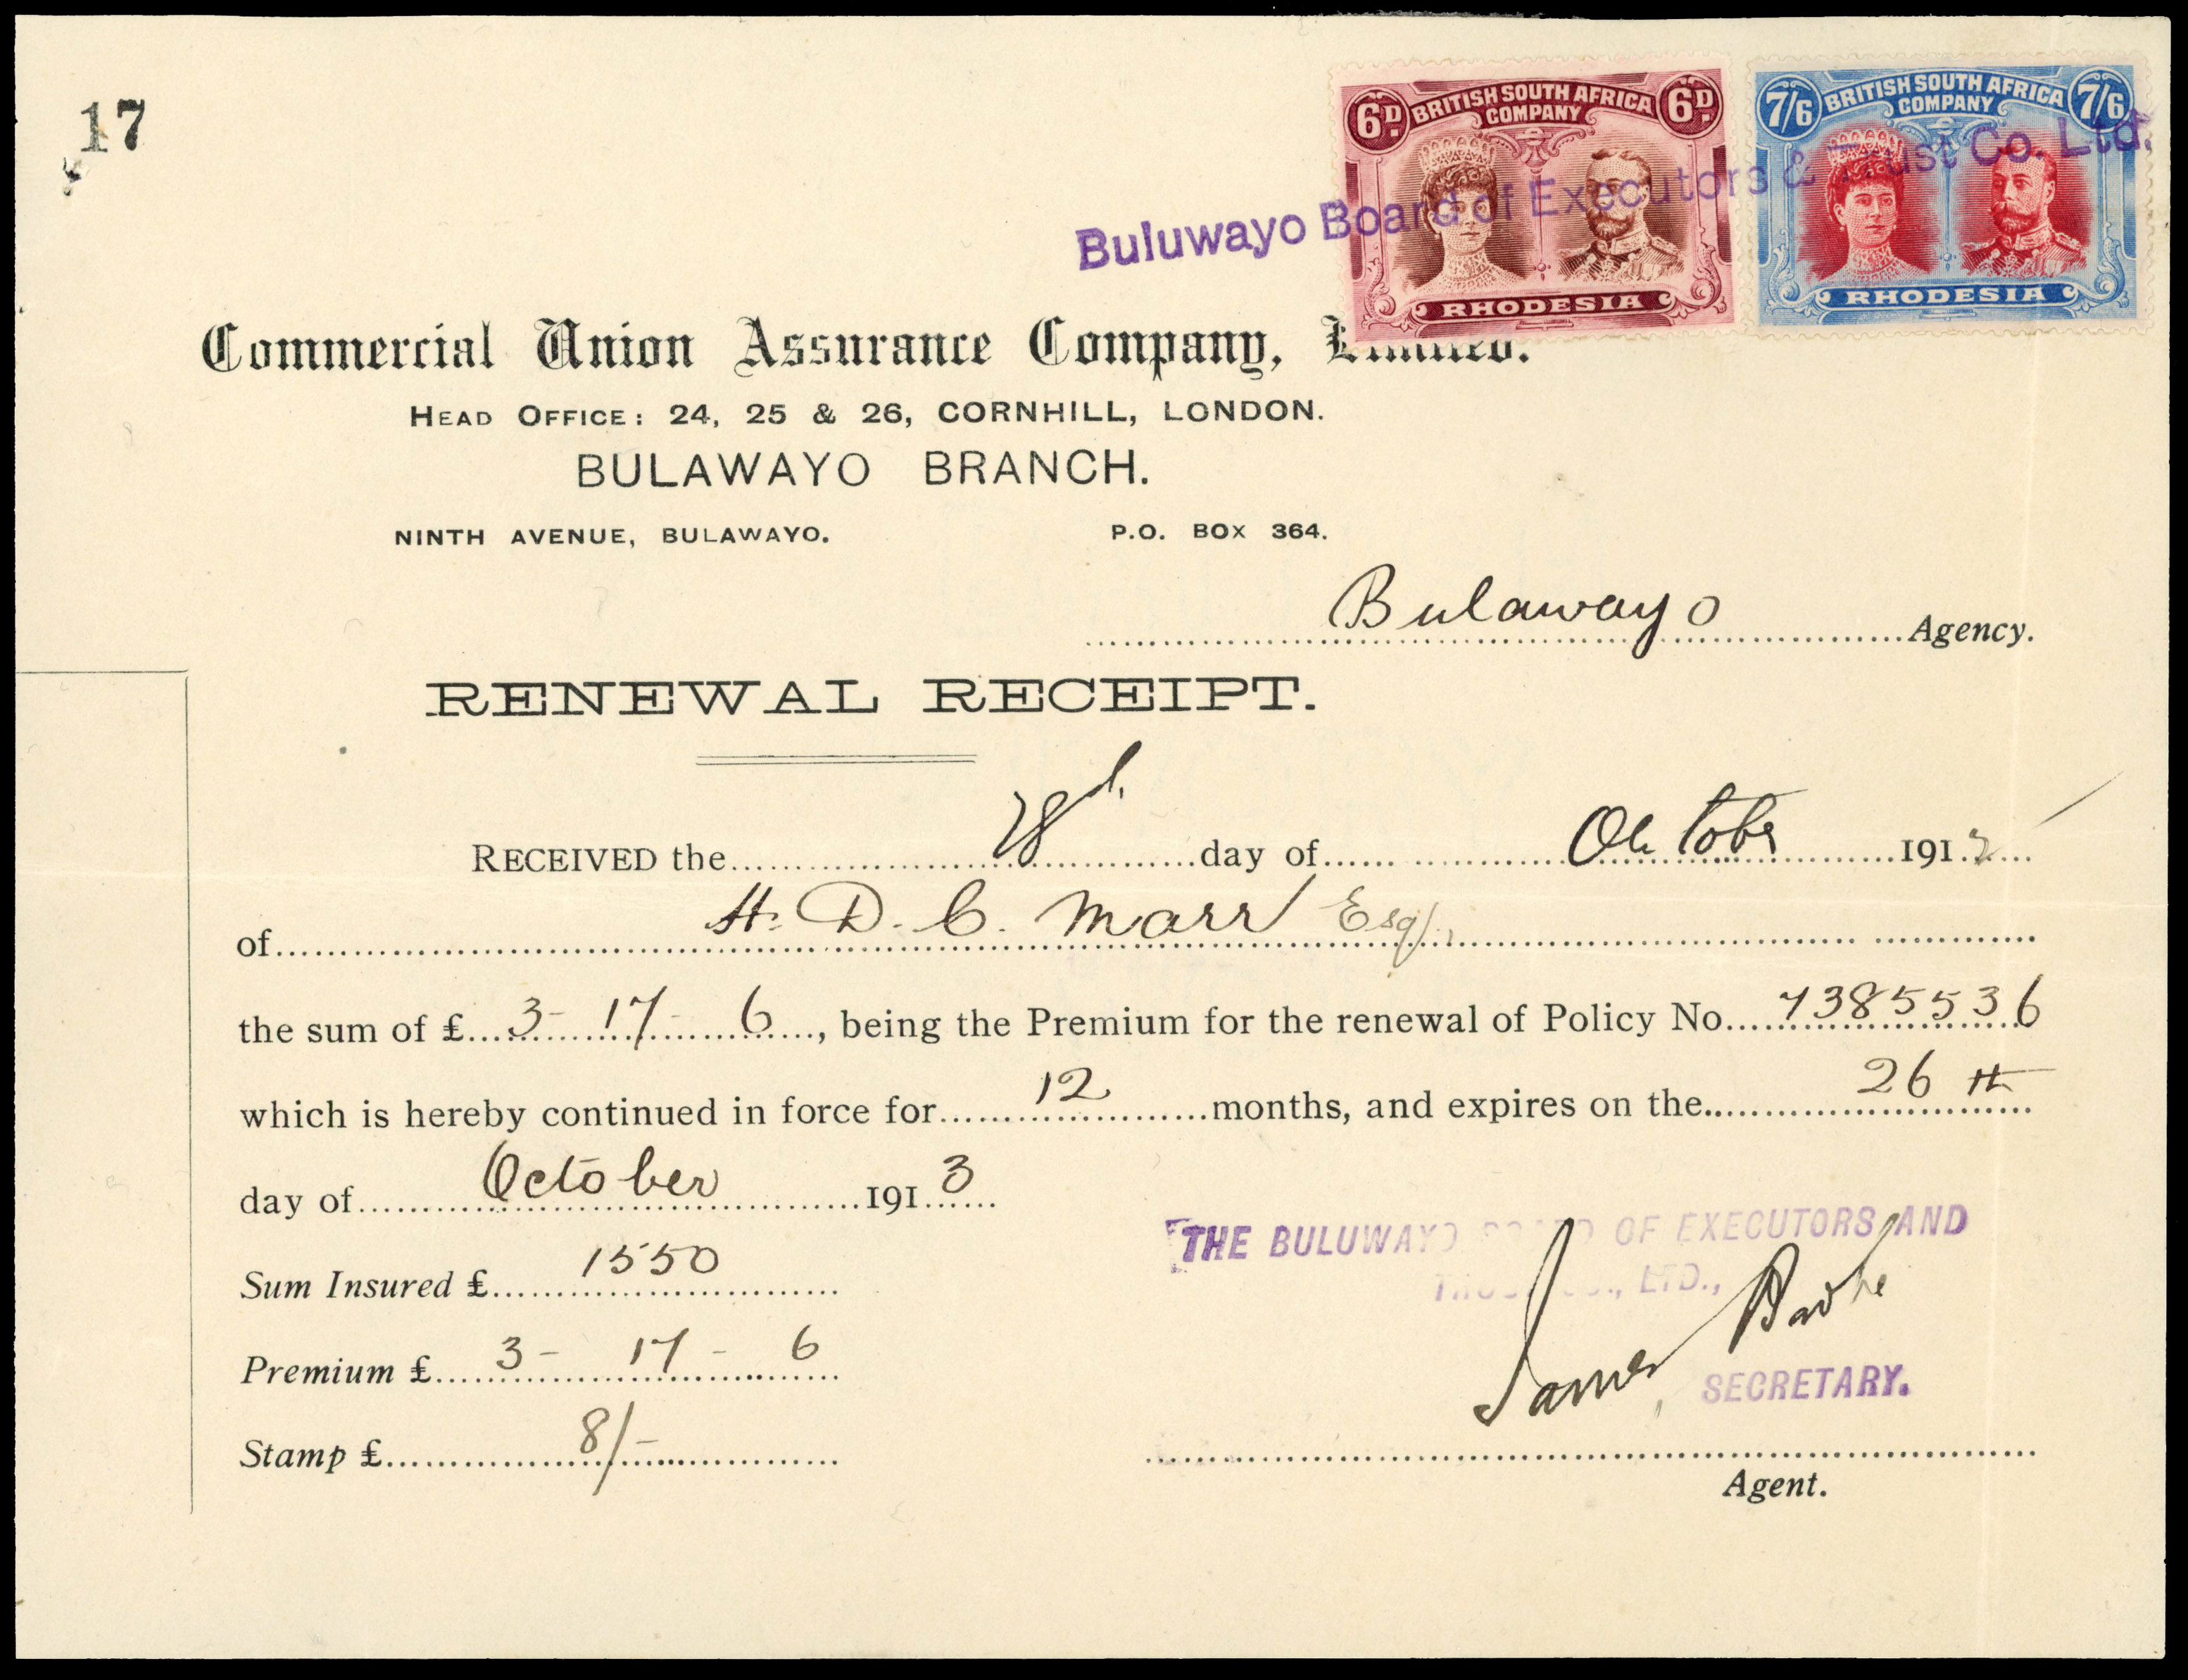 17
6D. BRITISH SOUTH AFRICA COMPANY 6D
RHODESIA
7/6 BRITISH SOUTH AFRICA COMPANY 7/6
RHODESIA
Buluwayo Board of Executors & Trust Co. Ltd.
Commercial Union Assurance Company, Limited.
HEAD OFFICE: 24, 25 & 26, CORNHILL, LONDON.
BULAWAYO BRANCH.
NINTH AVENUE, BULAWAYO. P.O. BOX 364.
Bulawayo Agency.
RENEWAL RECEIPT.
RECEIVED the 28th day of October 1912
of H. D. C. Marr Esq.
the sum of £ 3 - 17 - 6, being the Premium for the renewal of Policy No. 7385536
which is hereby continued in force for 12 months, and expires on the 26th
day of October 1913
THE BULUWAYO BOARD OF EXECUTORS AND
TRUST CO., LTD.,
Sum Insured £ 1550
Premium £ 3 - 17 - 6
James
SECRETARY.
Stamp £ 8/-
Agent.